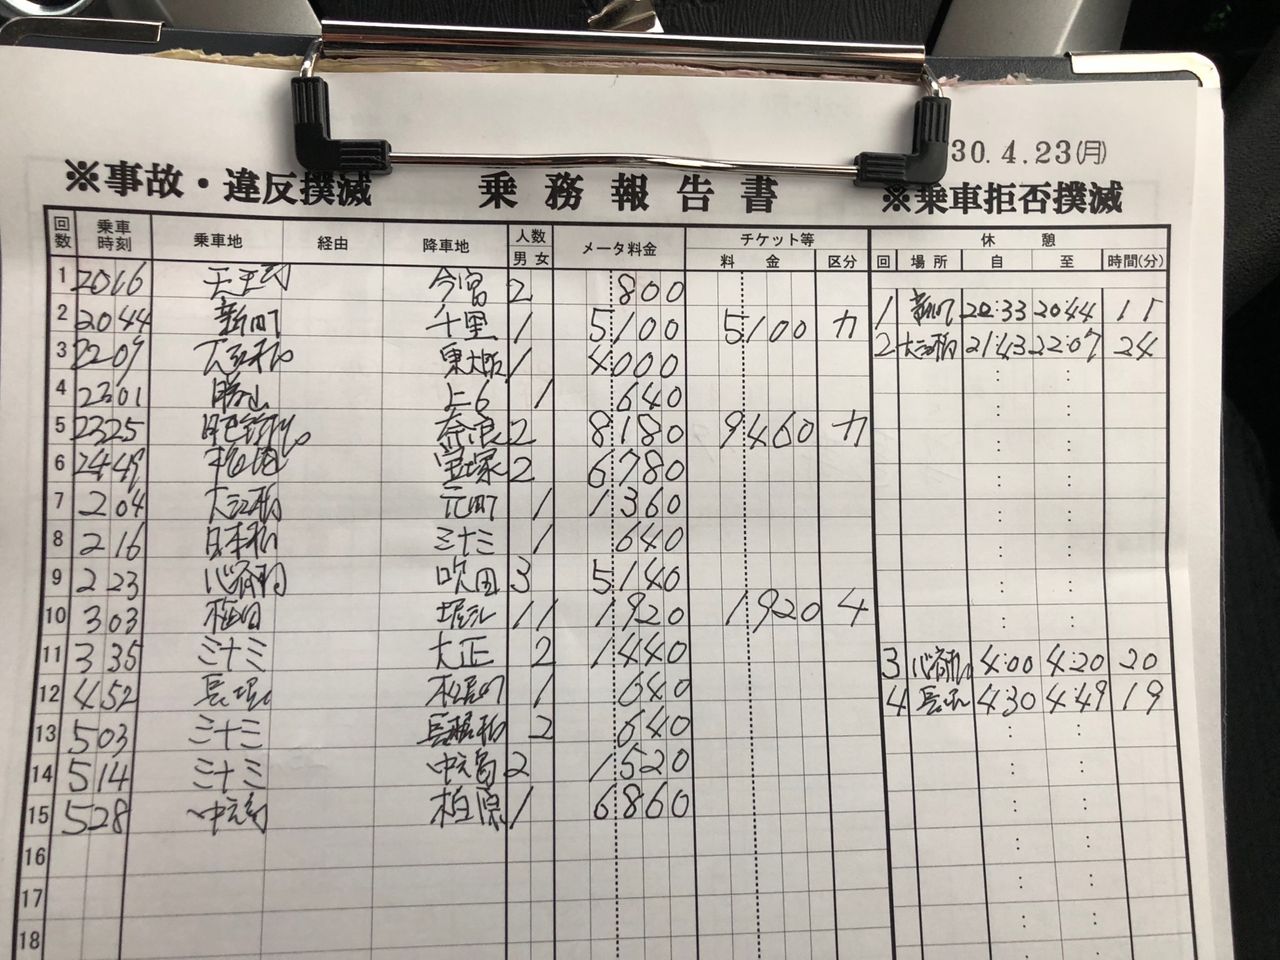 30.4.23(月)
※事故・違反撲滅 乗務報告書 ※乗車拒否撲滅
回数 乗車時刻 乗車地 経由 降車地 人数 男 女 メータ料金 チケット等 料金 区分 休憩 回 場所 自 至 時間(分)
1 2016 天王寺 今宮 2 800
2 2044 新町 千里 1 5100 5100 カ 1 新町 20:33 20:44 11
3 2209 大江橋 東大阪 1 4000 2 大江橋 21:43 22:07 24
4 2301 勝山 上6 1 640
5 2325 奈良 2 8180 9460 カ
6 2449 宝塚 2 6780
7 204 大江橋 元町 1 1360
8 216 日本橋 三十三 1 640
9 223 心斎橋 吹田 3 5140
10 303 堀江 1 1 1920 1920 4
11 335 三十三 大正 2 1440 3 心斎橋 4:00 4:20 20
12 452 長堀 1 640 4 長堀 4:30 4:49 19
13 503 三十三 長堀橋 2 640
14 514 三十三 中之島 2 1520
15 528 中之島 柏原 1 6860
16
17
18